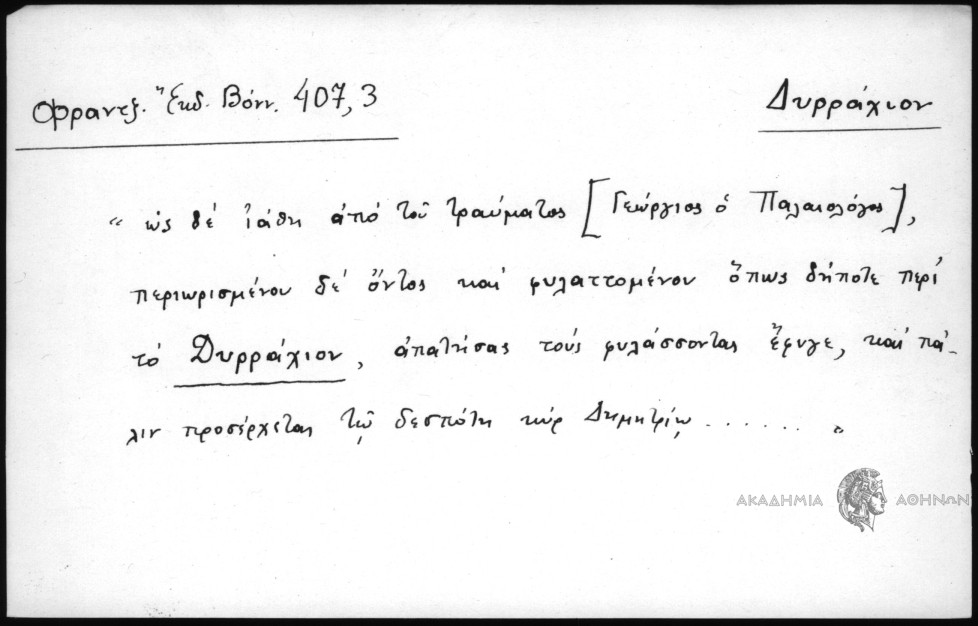 Φραντζ. Ἔκδ. Βόνν. 407,3
Δυρράχιον
“ ὡς δέ ἰάθη ἀπό τοῦ τραύματος [Γεώργιος ὁ Παλαιολόγος],
περιωρισμένου δέ ὄντος καί φυλαττομένου ὅπως δήποτε περί
τό Δυρράχιον, ἀπατήσας τούς φυλάσσοντας ἔφυγε, καί πά-
λιν προσέρχεται τῷ δεσπότῃ κύρ Δημητρίῳ ....... „
ΑΚΑΔΗΜΙΑ ΑΘΗΝΩΝ